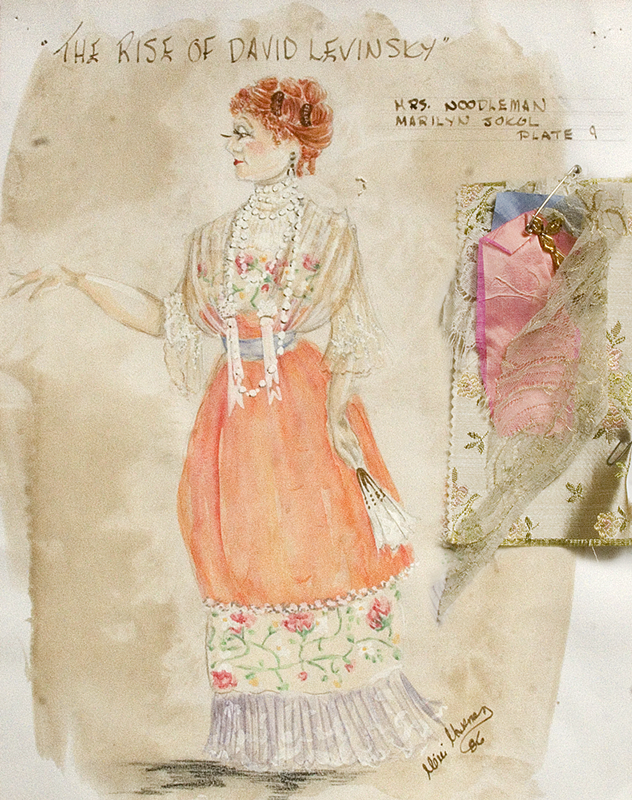 "THE RISE OF DAVID LEVINSKY"
MRS. NOODLEMAN
MARILYN SOKOL
PLATE 9
86